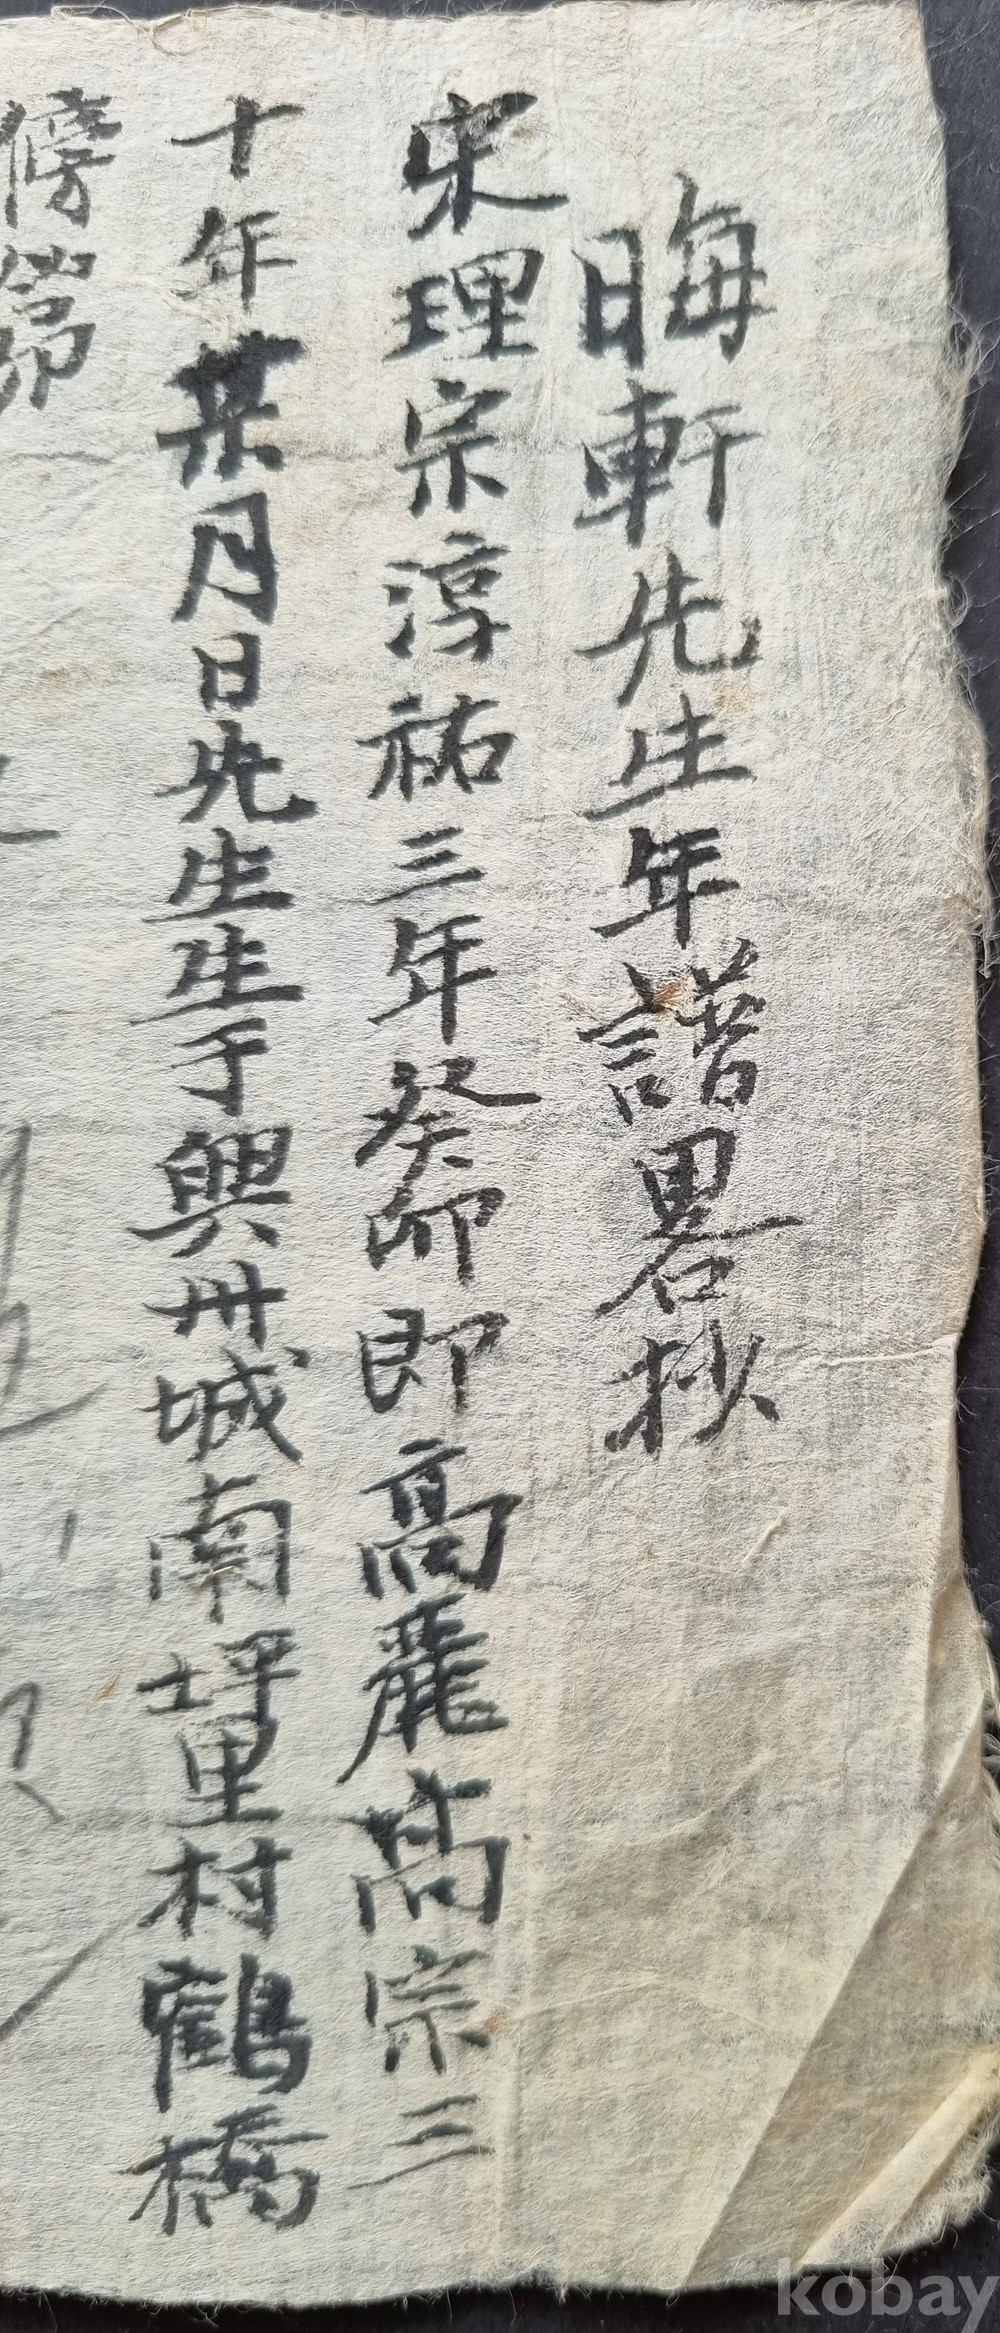 晦軒先生年譜畧抄
宋理宗淳祐三年癸卯即高麗高宗三
十年某月日先生生于興州城南坪里村鶴橋
傍
kobay